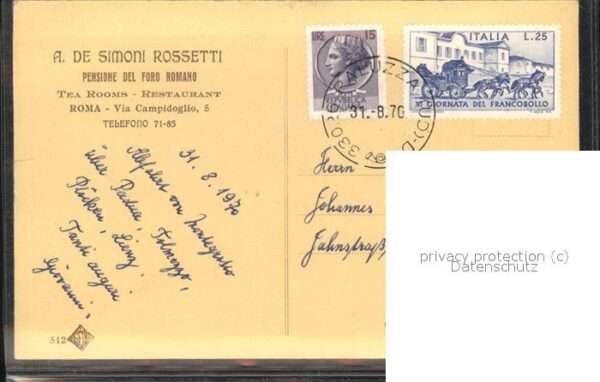 A. DE SIMONI ROSSETTI
PENSIONE DEL FORO ROMANO
TEA ROOMS - RESTAURANT
ROMA - Via Campidoglio, 5
TELEFONO 71-85
LIRE 15
ITALIA L.25
3ª GIORNATA DEL FRANCOBOLLO
31.-8.70
31. 8. 1970
Abfahrt von Montegrotto
über Padua, Tolmezzo,
Plöcken, Lienz.
Tanti auguri
Giovanni.
Herrn
Johannes
Jahnstraß
312
privacy protection (c)
Datenschutz